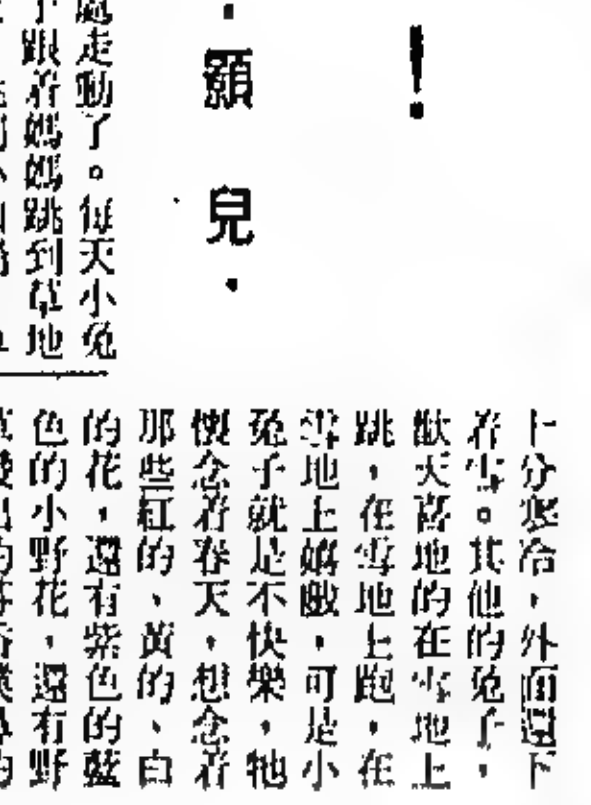 ！
·顏兒·
處走動了。每天小兔
子跟着媽媽跳到草地
十分寒冷，外面還下
着雪。其他的兔子，
歡天喜地的在雪地上
跳，在雪地上跑，在
雪地上嬉戲，可是小
兔子就是不快樂，牠
懷念着春天，想念着
那些紅的、黃的、白
的花，還有紫色的藍
色的小野花，還有野